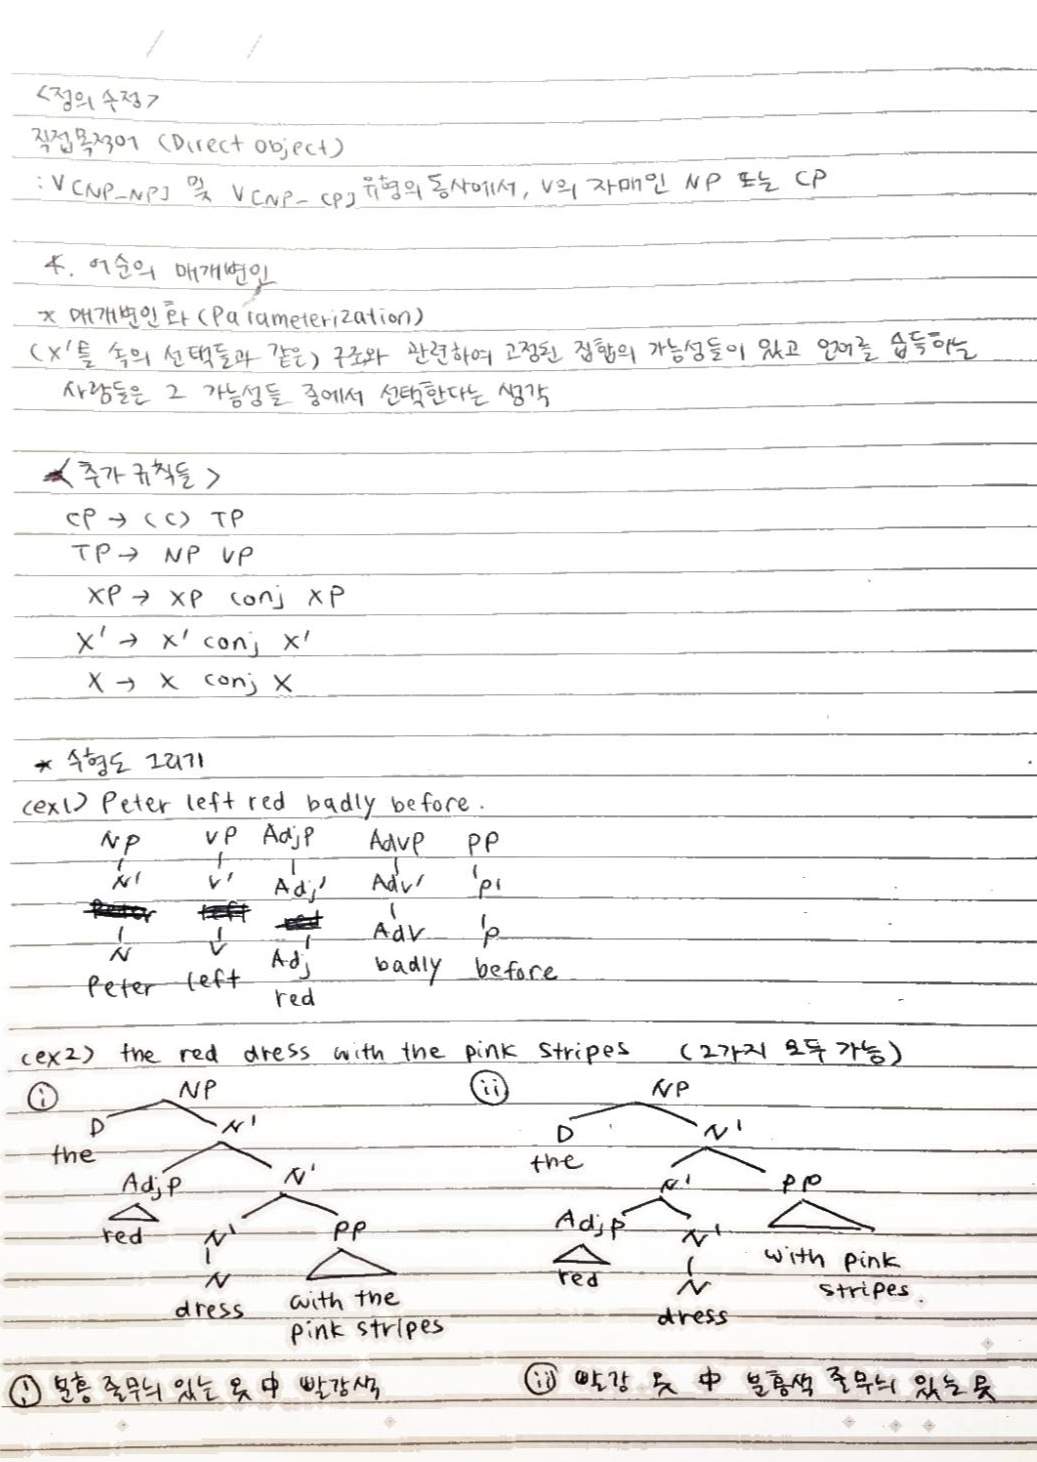 <정의 수정>
직접목적어 (Direct object)
: V[NP_NP] 및 V[NP_CP] 유형의 동사에서, V의 자매인 NP 또는 CP
4. 어순의 매개변인
* 매개변인화 (Parameterization)
(X'틀 속의 선택들과 같은) 구조와 관련하여 고정된 집합의 가능성들이 있고 언어를 습득하는
사람들은 그 가능성들 중에서 선택한다는 생각
<추가 규칙들>
CP → (C) TP
TP → NP VP
XP → XP conj XP
X' → X' conj X'
X → X conj X
* 수형도 그리기
(ex1) Peter left red badly before.
NP VP AdjP AdvP PP
N' V' Adj' Adv' P'
N V Adj Adv P
Peter left red badly before
(ex2) the red dress with the pink stripes (2가지 모두 가능)
ⓘ NP
D N'
the
AdjP N'
red N' PP
N
dress with the
pink stripes
ⓘⓘ NP
D N'
the
N' PP
AdjP N' with pink
red N stripes.
dress
ⓘ 분홍 줄무늬 있는 옷 中 빨강색
ⓘⓘ 빨강 옷 中 분홍색 줄무늬 있는 옷